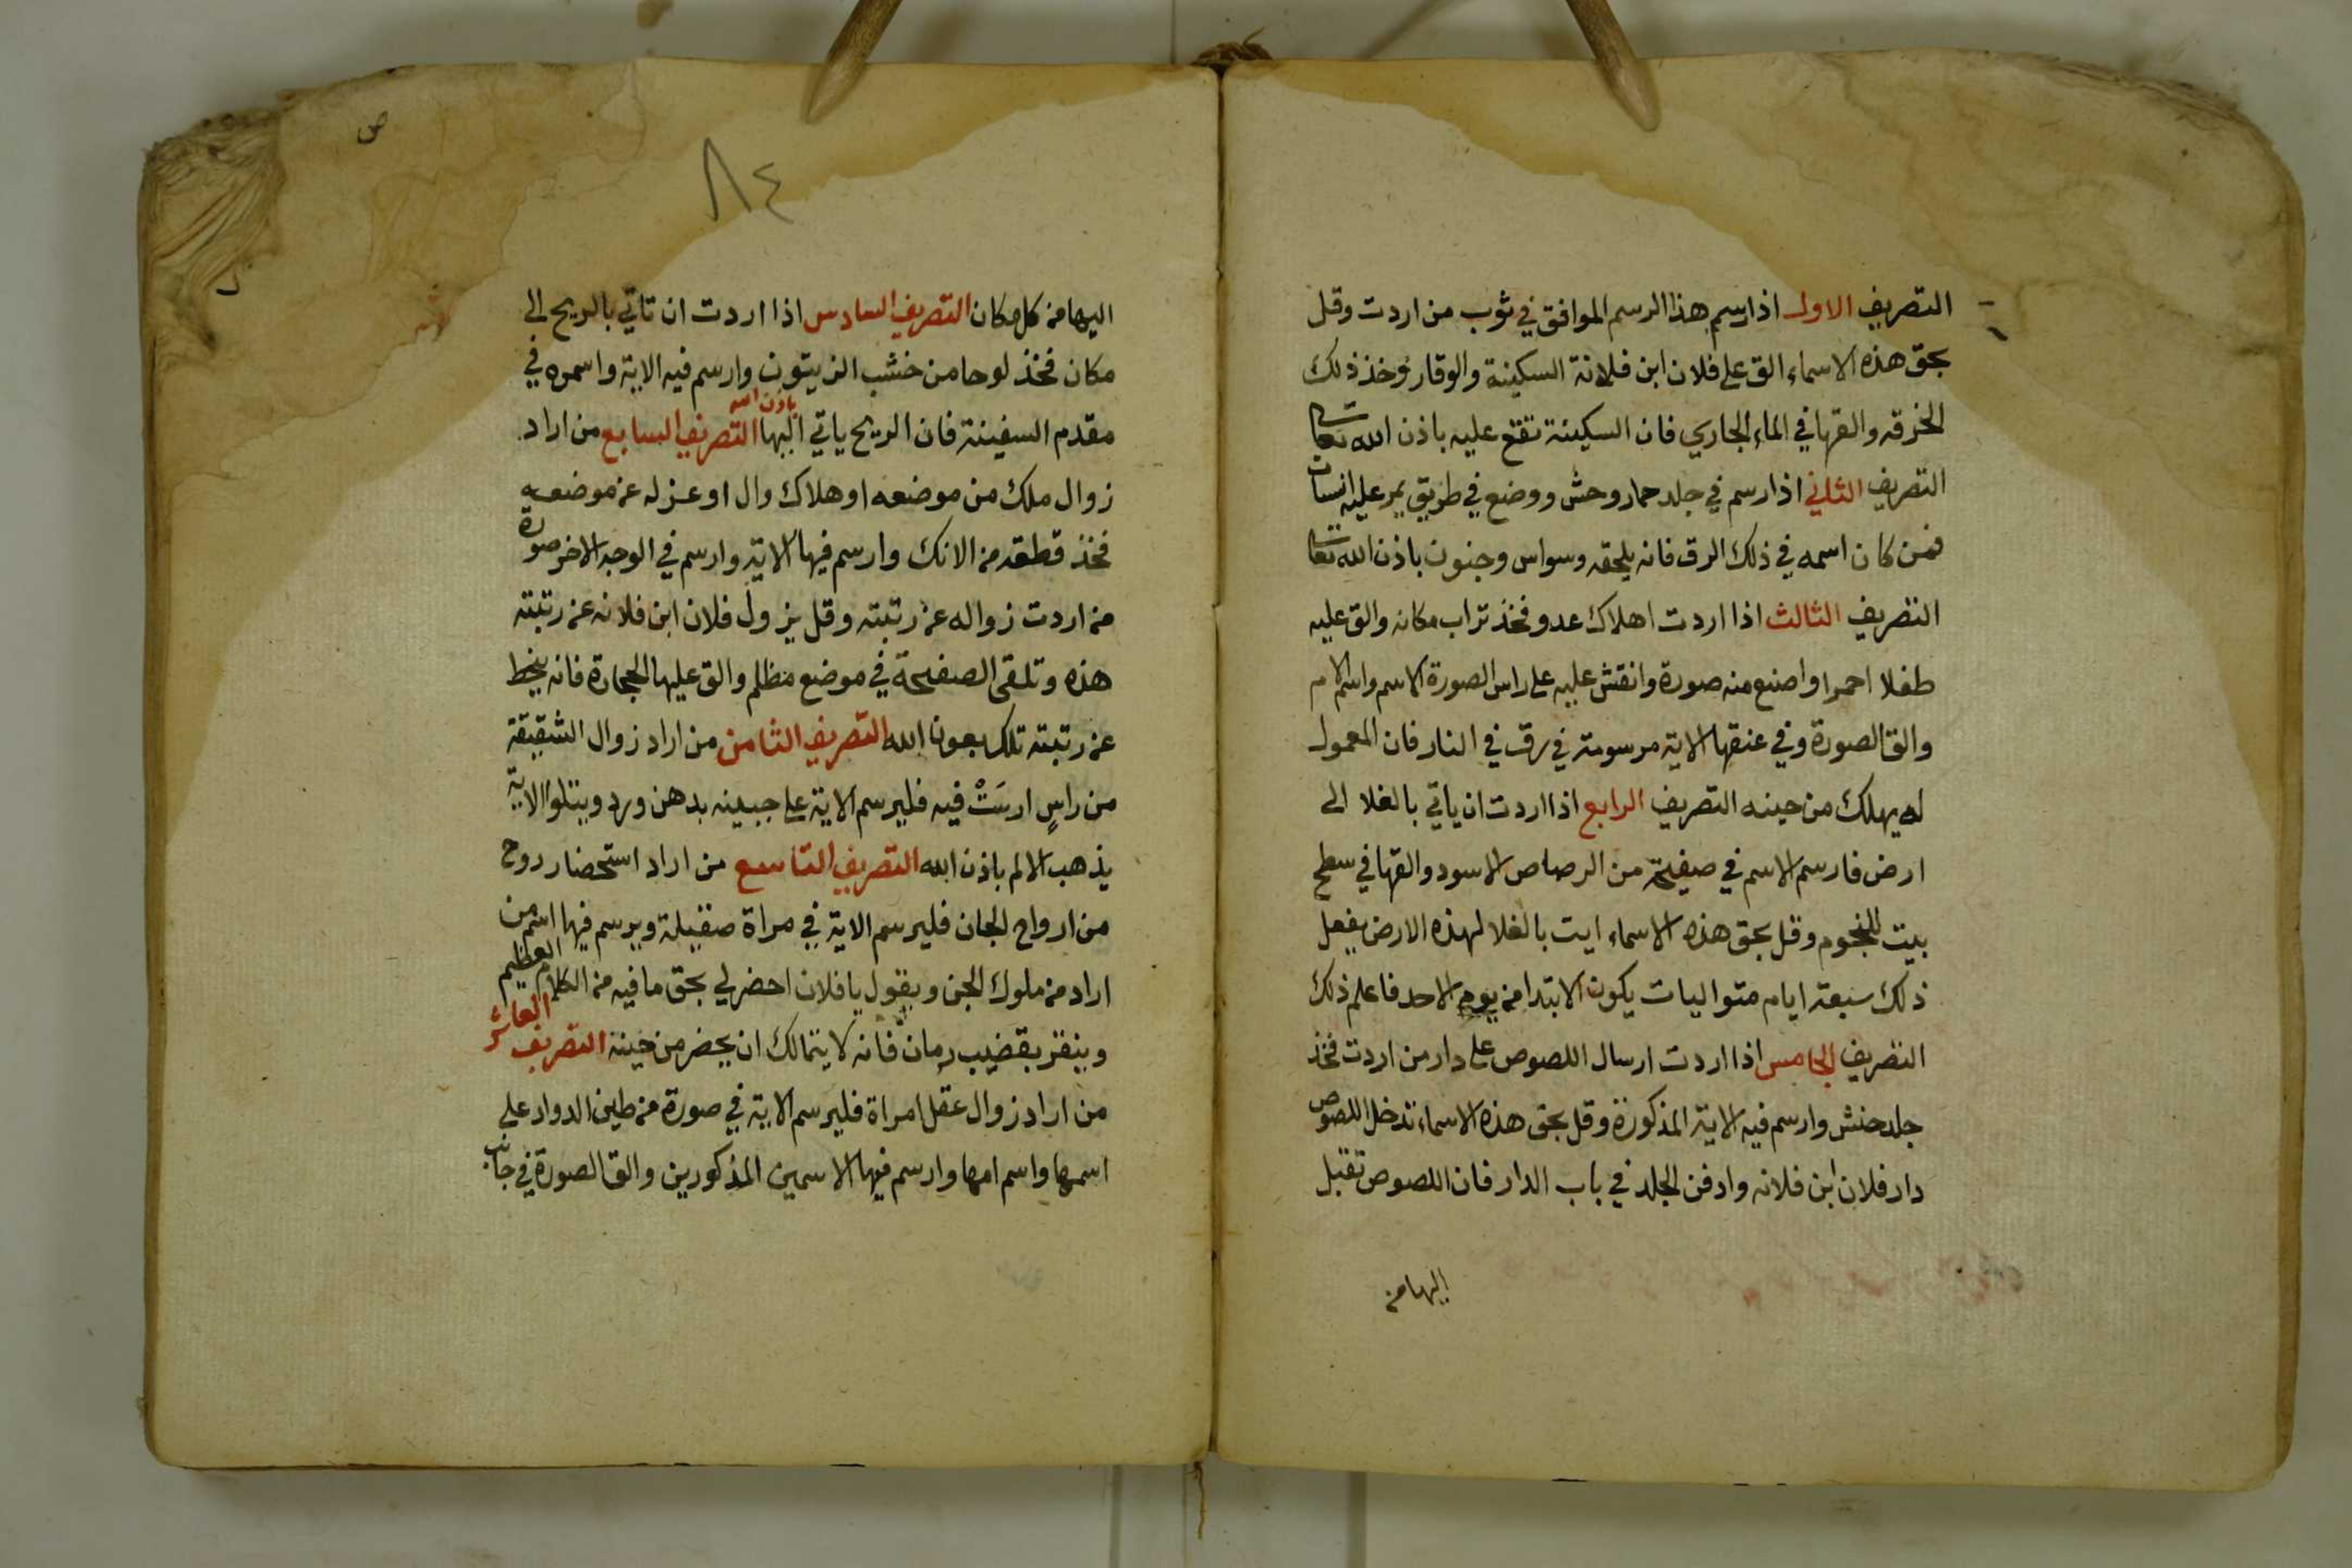 التصريف الاول اذا رسم هذا الرسم الموافق في ثوب من اردت وقل
بحق هذه الاسماء الق على فلان ابن فلانة السكينة والوقار وخذ ذلك
الخرقه والقها في الماء الجاري فان السكينة تقع عليه باذن الله تعالى
التصريف الثاني اذا رسم في جلد حمار وحش ووضع في طريق يمر عليه انسان
فمن كان اسمه في ذلك الرق فانه يلحقه وسواس وجنون باذن الله تعالى
التصريف الثالث اذا اردت اهلاك عدو فخذ تراب مكانه والق عليه
طفلا احمرا واصنع منه صورة وانقش عليه على راس الصورة الاسم واسم الام
والق الصورة وفي عنقها الاية مرسومة في رق في النار فان المعمول
له يهلك من حينه التصريف الرابع اذا اردت ان ياتي بالغلا الى
ارض فارسم الاسم في صفيحة من الرصاص الاسود والقها في سطح
بيت للنجوم وقل بحق هذه الاسماء ايت بالغلا لهذه الارض يفعل
ذلك سبعة ايام متواليات يكون الابتدا من يوم الاحد فاعلم ذلك
التصريف الخامس اذا اردت ارسال اللصوص على دار من اردت فخذ
جلد حنش وارسم فيه الاية المذكورة وقل بحق هذه الاسماء تدخل اللصوص
دار فلان ابن فلانه وادفن الجلد في باب الدار فان اللصوص تقبل
اليها من
ص
٨٤
اليها من كل مكان التصريف السادس اذا اردت ان تاتي بالريح الى
مكان فخذ لوحا من خشب الزيتون وارسم فيه الاية واسمره في
مقدم السفينة فان الريح ياتي اليها باذن الله التصريف السابع من اراد
زوال ملك من موضعه او هلاك وال او عزله عن موضعه
فخذ قطعه من الانك وارسم فيها الاية وارسم في الوجه الاخر صورة
من اردت زواله عن رتبته وقل يزول فلان ابن فلانه عن رتبته
هذه وتلقى الصفيحة في موضع مظلم والق عليها الحجارة فانه ينحط
عن رتبته تلك بعون الله التصريف الثامن من اراد زوال الشقيقة
من راسٍ ارسَتْ فيه فليرسم الاية على جبينه بدهن ورد ويتلوا الاية
يذهب الالم باذن الله التصريف التاسع من اراد استحضار روح
من ارواح الجان فليرسم الاية في مراة صقيلة ويرسم فيها اسم من
اراد من ملوك الجن ويقول يا فلان احضر لي بحق ما فيه من الكلام العظيم
وينقر بقضيب رمان فانه لا يتمالك ان يحضر من حينه التصريف العاشر
من اراد زوال عقل امراة فليرسم الاية في صورة من طين الدواد على
اسمها واسم امها وارسم فيها الاسمين المذكورين والق الصورة في جانب